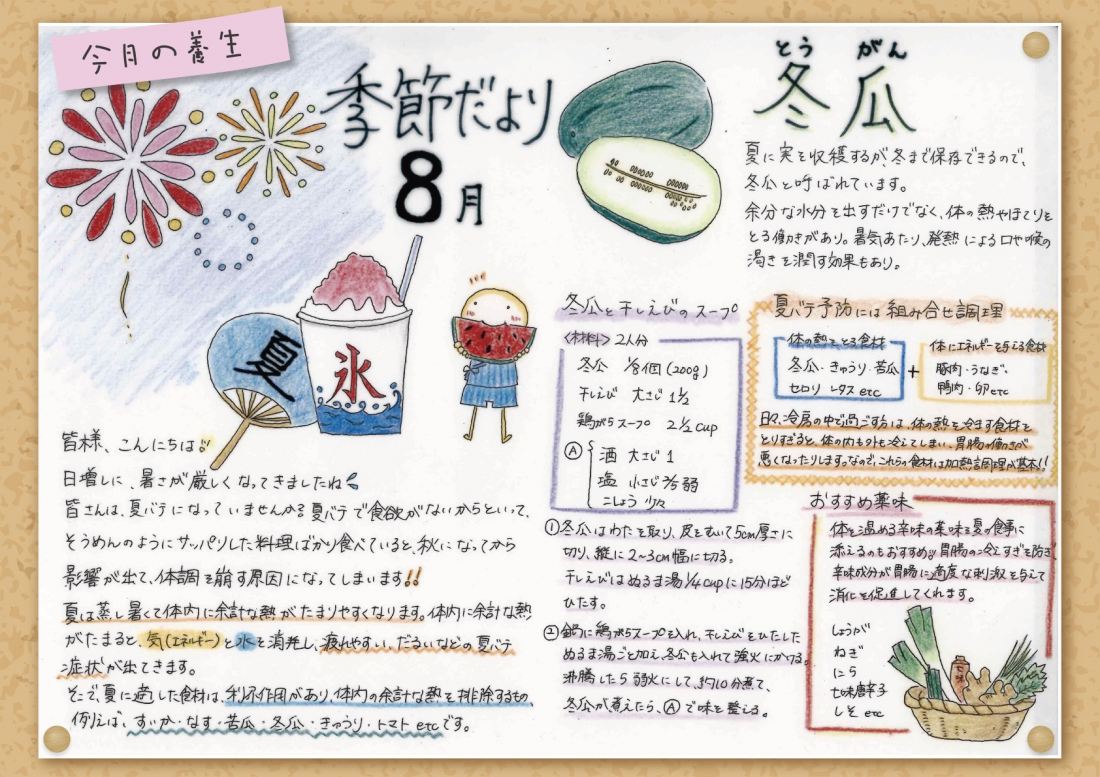 今月の養生
季節だより
8月
夏
氷
皆様、こんにちは!!
日増しに、暑さが厳しくなってきましたね
皆さんは、夏バテになっていませんか?夏バテで食欲がないからといって、
そうめんのようにサッパリした料理ばかり食べていると、秋になってから
影響が出て、体調を崩す原因になってしまいます!!
夏は蒸し暑くて体内に余計な熱がたまりやすくなります。体内に余計な熱
がたまると、気(エネルギー)と水を消耗し、疲れやすい、だるいなどの夏バテ
症状が出てきます。
そこで、夏に適した食材は、利水作用があり、体内の余計な熱を排除するもの
例えば、すいか・なす・苦瓜・冬瓜・きゅうり・トマト etcです。
とう がん
冬瓜
夏に実を収穫するが、冬まで保存できるので、
冬瓜と呼ばれています。
余分な水分を出すだけでなく、体の熱やほてりを
とる働きがあり。暑気あたり、発熱による口や喉の
渇きを潤す効果もあり。
冬瓜と干しえびのスープ
<材料> 2人分
冬瓜 1/8個(200g)
干しえび 大さじ1 1/2
鶏がらスープ 2 1/2 cup
Ⓐ
酒 大さじ1
塩 小さじ2/5弱
こしょう 少々
①冬瓜はわたを取り、皮をむいて5cm厚さに
切り、縦に2~3cm幅に切る。
干しえびはぬるま湯1/4cupに15分ほど
ひたす。
②鍋に鶏がらスープを入れ、干しえびをひたした
ぬるま湯ごと加え、冬瓜も入れて強火にかける。
沸騰したら弱火にして、約10分煮て、
冬瓜が煮えたら、Ⓐで味を整える。
夏バテ予防には組み合せ調理
体の熱をとる食材
冬瓜・きゅうり・苦瓜
セロリ レタス etc
+
体にエネルギーを与える食材
豚肉・うなぎ・
鴨肉・卵 etc
日々、冷房の中で過ごす方は、体の熱を冷ます食材を
とりすぎると、体の内も外も冷えてしまい、胃腸の働きが
悪くなったりします。なので、これらの食材は加熱調理が基本!!
おすすめ薬味
体を温める辛味の薬味を夏の食事に
添えるのもおすすめ!!胃腸の冷えすぎを防ぎ、
辛味成分が胃腸に適度な刺激を与えて
消化を促進してくれます。
しょうが
ねぎ
にら
七味唐辛子
しそ etc
七味